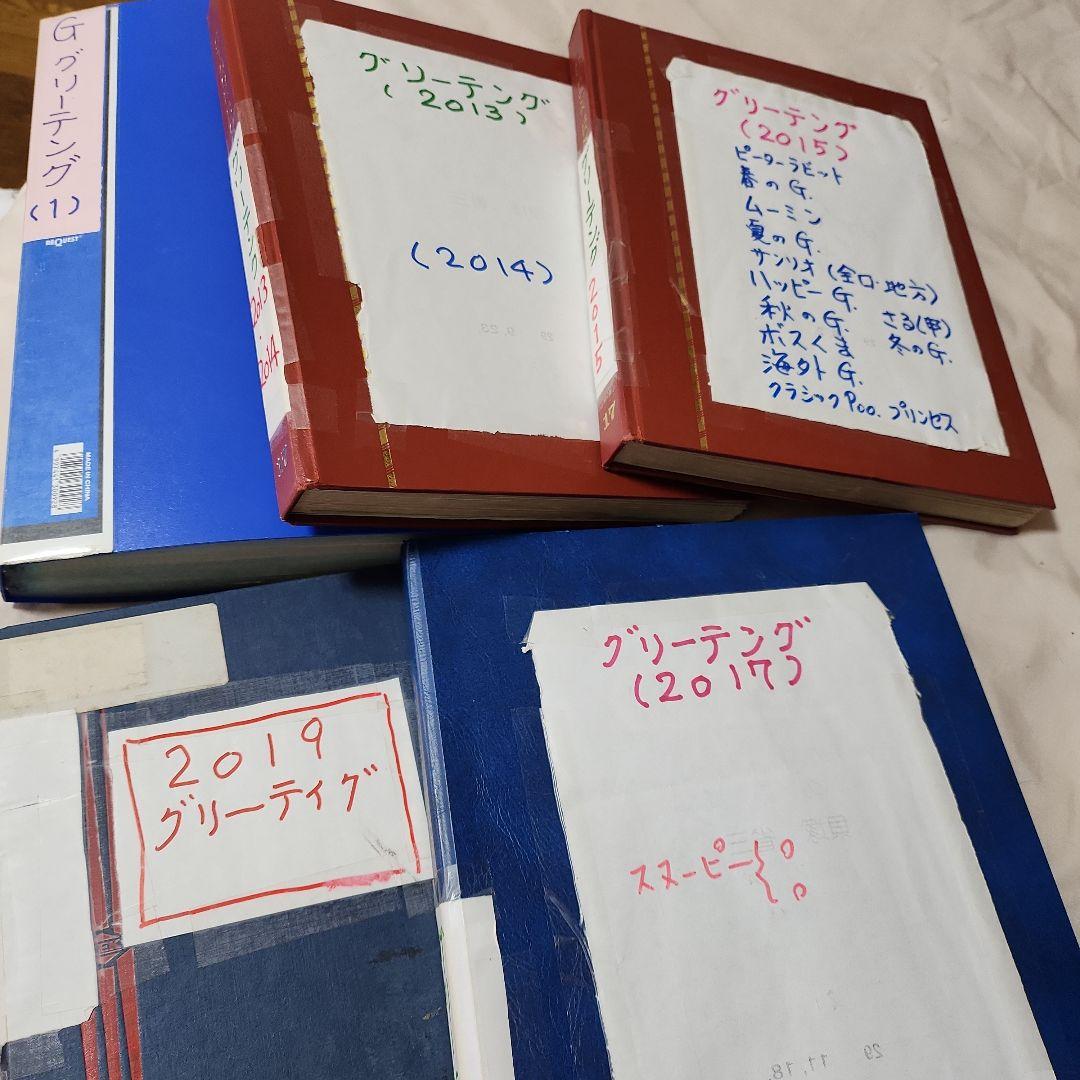 G グリーティング
(1)
REQUEST
MADE IN CHINA
グリーティング 2013
2014
グリーテング
(2013)
(2014)
グリーテング 2015
17
グリーテング
(2015)
ピーターラビット
春のG.
ムーミン
夏のG.
サンリオ (全口・地方)
ハッピーG.
秋のG. さる(申)
ボスくま 冬のG.
海外G.
クラシックPoo. プリンセス
2019
グリーティグ
グリーテング
(2017)
スヌーピー
29 11,18.